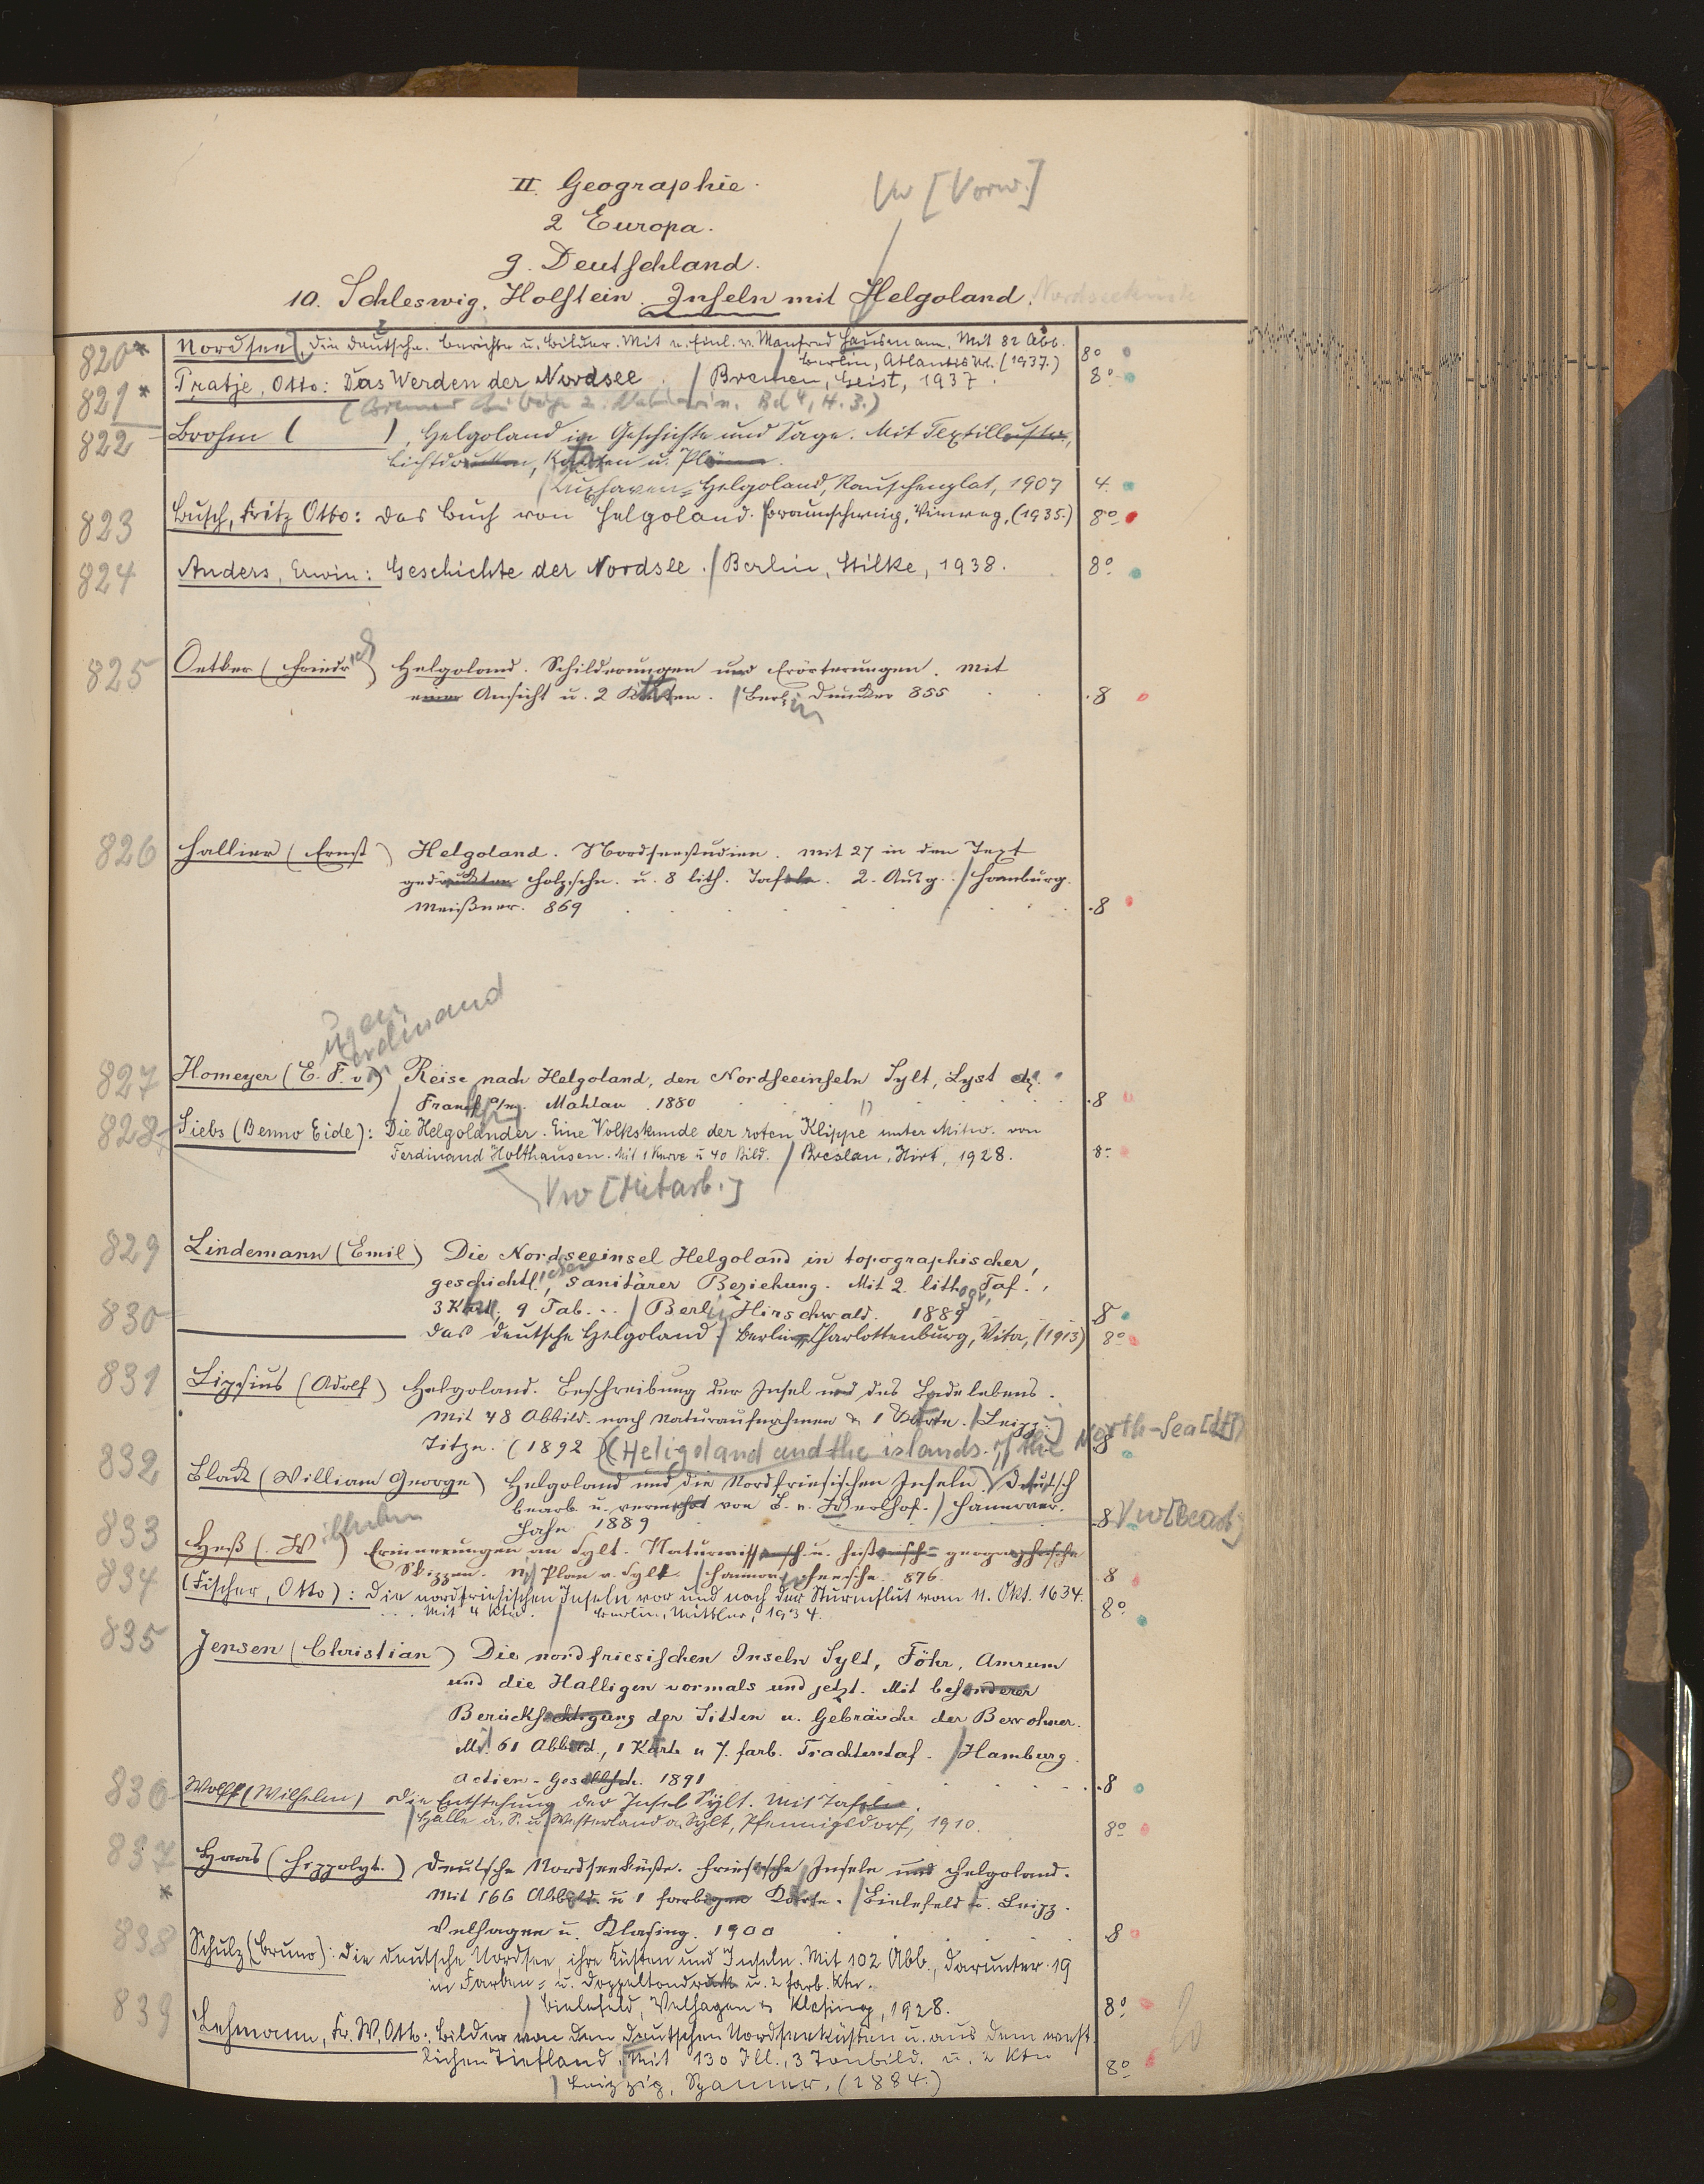 II. Geographie.
Vw [Vorw.]
2 Europa.
g. Deutschland.
10. Schleswig. Holstein. Inseln mit Helgoland. Nordseeküste
820* Nordsee, die deutsche. Berichte u. Bilder. Mit e. Einl. v. Manfred Hausmann. Mit 82 Abb.
Berlin, Atlantis Vl. (1937.) 8°
821* Pratje, Otto: Das Werden der Nordsee. / Bremen, Geist, 1937. 8°
Bd 4, H. 3.)
822 Brohm ( ), Helgoland in Geschichte und Sage. Mit Textillustr.,
Lichtdrucken, Karten u. Plänen.
/ Cuxhaven-Helgoland, Rauschenplat, 1907 4.
823 Busch, Fritz Otto: Das Buch von Helgoland. / Braunschweig, Vieweg, (1935.) 8°
824 Anders, Erwin: Geschichte der Nordsee. / Berlin, Stilke, 1938. 8°
825 Oetker (Friedrich) Helgoland. Schilderungen und Erörterungen. Mit
einer Ansicht u. 2 Karten. / Berlin Duncker 855 8
826 Hallier (Ernst) Helgoland. Nordseestudien. Mit 27 in den Text
gedruckten Holzschn. u. 8 lith. Tafeln. 2. Ausg. / Hamburg.
Meißner. 869 8
ugen
erdinand
827 Homeyer (E. F. von) Reise nach Helgoland, den Nordseeinseln Sylt, Lyst etc.
/ Frankf a/m. Mahlau. 1880 8
828 Siebs (Benno Eide): Die Helgoländer. Eine Volkskunde der roten Klippe unter Mitw. von
Ferdinand Holthausen. Mit 1 Kurve u 40 Bild. / Breslau, Hirt, 1928. 8°
Vw [Mitarb.]
829 Lindemann (Emil) Die Nordseeinsel Helgoland in topographischer,
geschichtlicher, sanitärer Beziehung. Mit 2 lithogr. Taf.,
3 Kart., 9 Tab. .. / Berlin Hirschwald. 1889 8
830 Das deutsche Helgoland. / Berlin-Charlottenburg, Vita, (1913) 8°
831 Lipsius (Adolf) Helgoland. Beschreibung der Insel und des Badelebens.
Mit 48 Abbild. nach Naturaufnahmen & 1 Karte. / Leipzig
Titze. (1892) 8
(Heligoland and the islands of the North-Sea [dt])
832 Black (William George) Helgoland und die Nordfriesischen Inseln. Deutsch
bearb. u. vermehrt von L. v. Werlhof. / Hannover.
Hahn. 1889 8 Vw [Bearb.]
833 Heß (Wilhelm) Erinnerungen an Sylt. Naturwissensch. u. historisch-geographische
Skizzen. M. Plan v. Sylt. / Hannover 876. 8
834 (Fischer, Otto): Die nordfriesischen Inseln vor und nach der Sturmflut vom 11. Okt. 1634.
Mit 4 Ktn. / Berlin, Mittler, 1934. 8°
835 Jensen (Christian) Die nordfriesischen Inseln Sylt, Föhr, Amrum
und die Halligen vormals und jetzt. Mit besonderer
Berücksichtigung der Sitten u. Gebräuche der Bewohner.
Mit 61 Abbild., 1 Karte u 7. farb. Trachtentaf. / Hamburg.
Actien-Gesellsch. 1891 8
836 Wolff (Wilhelm) Die Entstehung der Insel Sylt. Mit Tafeln.
/ Halle a. S. u. Westerland a. Sylt, Pfennigsdorf, 1910. 8°
837 Haas (Hippolyt.) Deutsche Nordseeküste. Friesische Inseln und Helgoland.
* Mit 166 Abbild. u 1 farbigen Karte. / Bielefeld u. Leipz.
Velhagen u. Klasing. 1900 8
838 Schulz (Bruno): Die deutsche Nordsee, ihre Küsten und Inseln. Mit 102 Abb., darunter 19
in Farben- u. Doppeltondruck u. 2 farb. Ktn.
/ Bielefeld, Velhagen & Klasing, 1928. 8°
839 Lehmann, Fr. W. Otto: Bilder von den deutschen Nordseeküsten u. aus dem west-
lichen Tiefland. Mit 130 Ill., 3 Tonbild. u. 2 Ktn 8°
/ Leipzig, Spamer, (1884.)